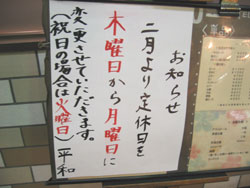 お知らせ
二月より定休日を
木曜日から月曜日に
変更させていただきます。
(祝日の場合は火曜日) 平和